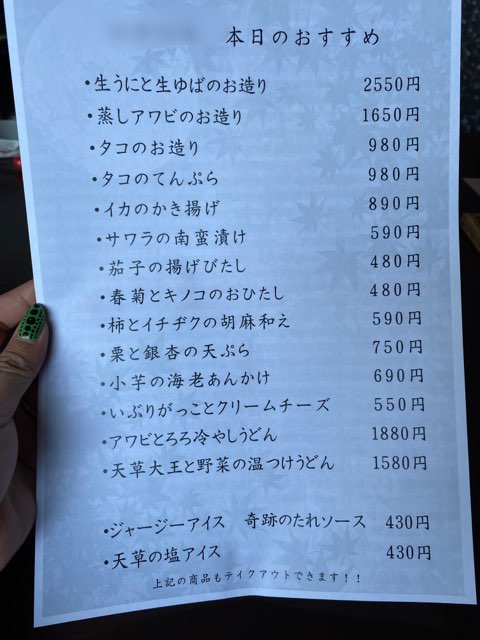 本日のおすすめ
・生うにと生ゆばのお造り 2550円
・蒸しアワビのお造り 1650円
・タコのお造り 980円
・タコのてんぷら 980円
・イカのかき揚げ 890円
・サワラの南蛮漬け 590円
・茄子の揚げびたし 480円
・春菊とキノコのおひたし 480円
・柿とイチヂクの胡麻和え 590円
・栗と銀杏の天ぷら 750円
・小芋の海老あんかけ 690円
・いぶりがっことクリームチーズ 550円
・アワビとろろ冷やしうどん 1880円
・天草大王と野菜の温つけうどん 1580円
・ジャージーアイス 奇跡のたれソース 430円
・天草の塩アイス 430円
上記の商品もテイクアウトできます！！